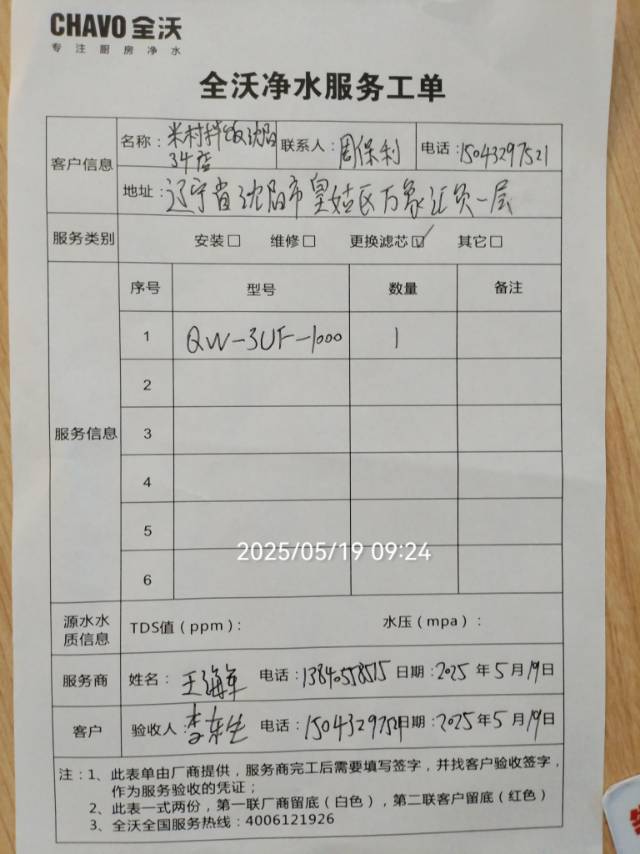 CHAVO 全沃
专注厨房净水
全沃净水服务工单
客户信息 名称：米村拌饭沈阳34店 联系人：周保利 电话：15043297521
地址：辽宁省沈阳市皇姑区万象汇负一层
服务类别 安装□ 维修□ 更换滤芯☑ 其它□
服务信息 序号 型号 数量 备注
1 QW-3UF-1000 1
2
3
4
5
6
2025/05/19 09:24
源水水质信息 TDS值（ppm）： 水压（mpa）：
服务商 姓名：王海军 电话：13840558515 日期：2025年5月19日
客户 验收人：李东生 电话：15043297521 日期：2025年5月19日
注：1、此表单由厂商提供，服务商完工后需要填写签字，并找客户验收签字，
作为服务验收的凭证；
2、此表一式两份，第一联厂商留底（白色），第二联客户留底（红色）
3、全沃全国服务热线：4006121926